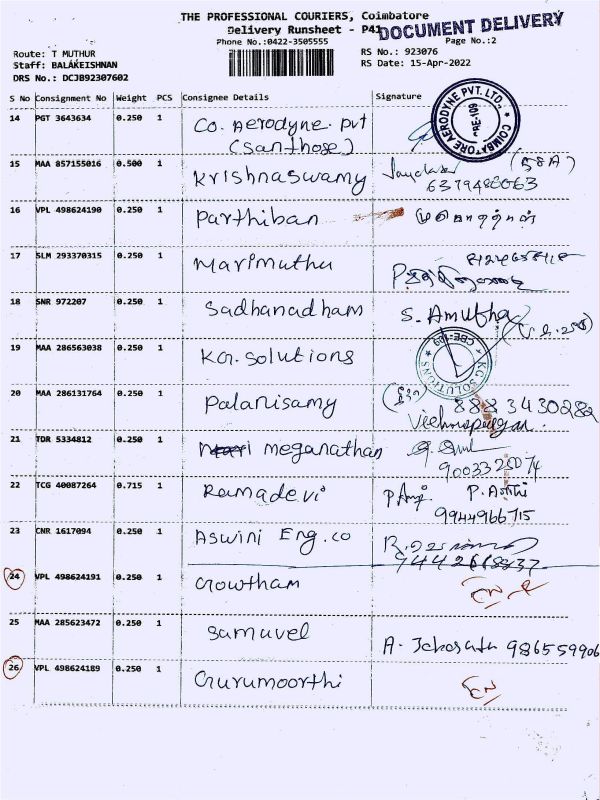 THE PROFESSIONAL COURIERS, Coimbatore
Delivery Runsheet - P41
DOCUMENT DELIVERY
Phone No.:0422-3505555
Page No.:2
Route: T MUTHUR
RS No.: 923076
Staff: BALAKEISHNAN
RS Date: 15-Apr-2022
DRS No.: DCJB92307602
S No Consignment No Weight PCS Consignee Details Signature
14 PGT 3643634 0.250 1 Co. Aerodyne. Pvt
(Santhose)
COIMBATORE AERODYNE PVT. LTD.,
15 MAA 857155016 0.500 1 Krishnaswamy
16 VPL 498624190 0.250 1 Parthiban
17 SLM 293370315 0.250 1 Marimuthu
18 SNR 972207 0.250 1 Sadhanadham S. Amutha
19 MAA 286563038 0.250 1 KG. Solutions
KG. SOLUTIONS
CBE-109
20 MAA 286131764 0.250 1 Palanisamy 8883430282
21 TDR 5334812 0.250 1 meganathan
22 TCG 40087264 0.715 1 Ramadevi
9944966715
23 CNR 1617094 0.250 1 Aswini Eng. co
24 VPL 498624191 0.250 1 Gowtham
25 MAA 285623472 0.250 1 Samuvel 986559906
26 VPL 498624189 0.250 1 Gurumoorthi